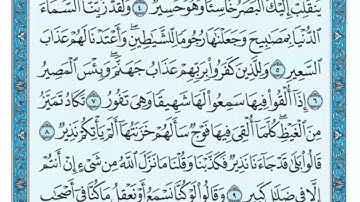 يَنقَلِبْ إِلَيْكَ ٱلْبَصَرُ خَاسِئًا وَهُوَ حَسِيرٌ ٤ وَلَقَدْ زَيَّنَّا ٱلسَّمَآءَ
ٱلدُّنْيَا بِمَصَٰبِيحَ وَجَعَلْنَٰهَا رُجُومًا لِّلشَّيَٰطِينِ وَأَعْتَدْنَا لَهُمْ عَذَابَ
ٱلسَّعِيرِ ٥ وَلِلَّذِينَ كَفَرُوا۟ بِرَبِّهِمْ عَذَابُ جَهَنَّمَ وَبِئْسَ ٱلْمَصِيرُ
٦ إِذَآ أُلْقُوا۟ فِيهَا سَمِعُوا۟ لَهَا شَهِيقًا وَهِىَ تَفُورُ ٧ تَكَادُ تَمَيَّزُ
مِنَ ٱلْغَيْظِ كُلَّمَآ أُلْقِىَ فِيهَا فَوْجٌ سَأَلَهُمْ خَزَنَتُهَآ أَلَمْ يَأْتِكُمْ نَذِيرٌ ٨
قَالُوا۟ بَلَىٰ قَدْ جَآءَنَا نَذِيرٌ فَكَذَّبْنَا وَقُلْنَا مَا نَزَّلَ ٱللَّهُ مِن شَىْءٍ إِنْ أَنتُمْ
إِلَّا فِى ضَلَٰلٍ كَبِيرٍ ٩ وَقَالُوا۟ لَوْ كُنَّا نَسْمَعُ أَوْ نَعْقِلُ مَا كُنَّا فِىٓ أَصْحَٰبِ